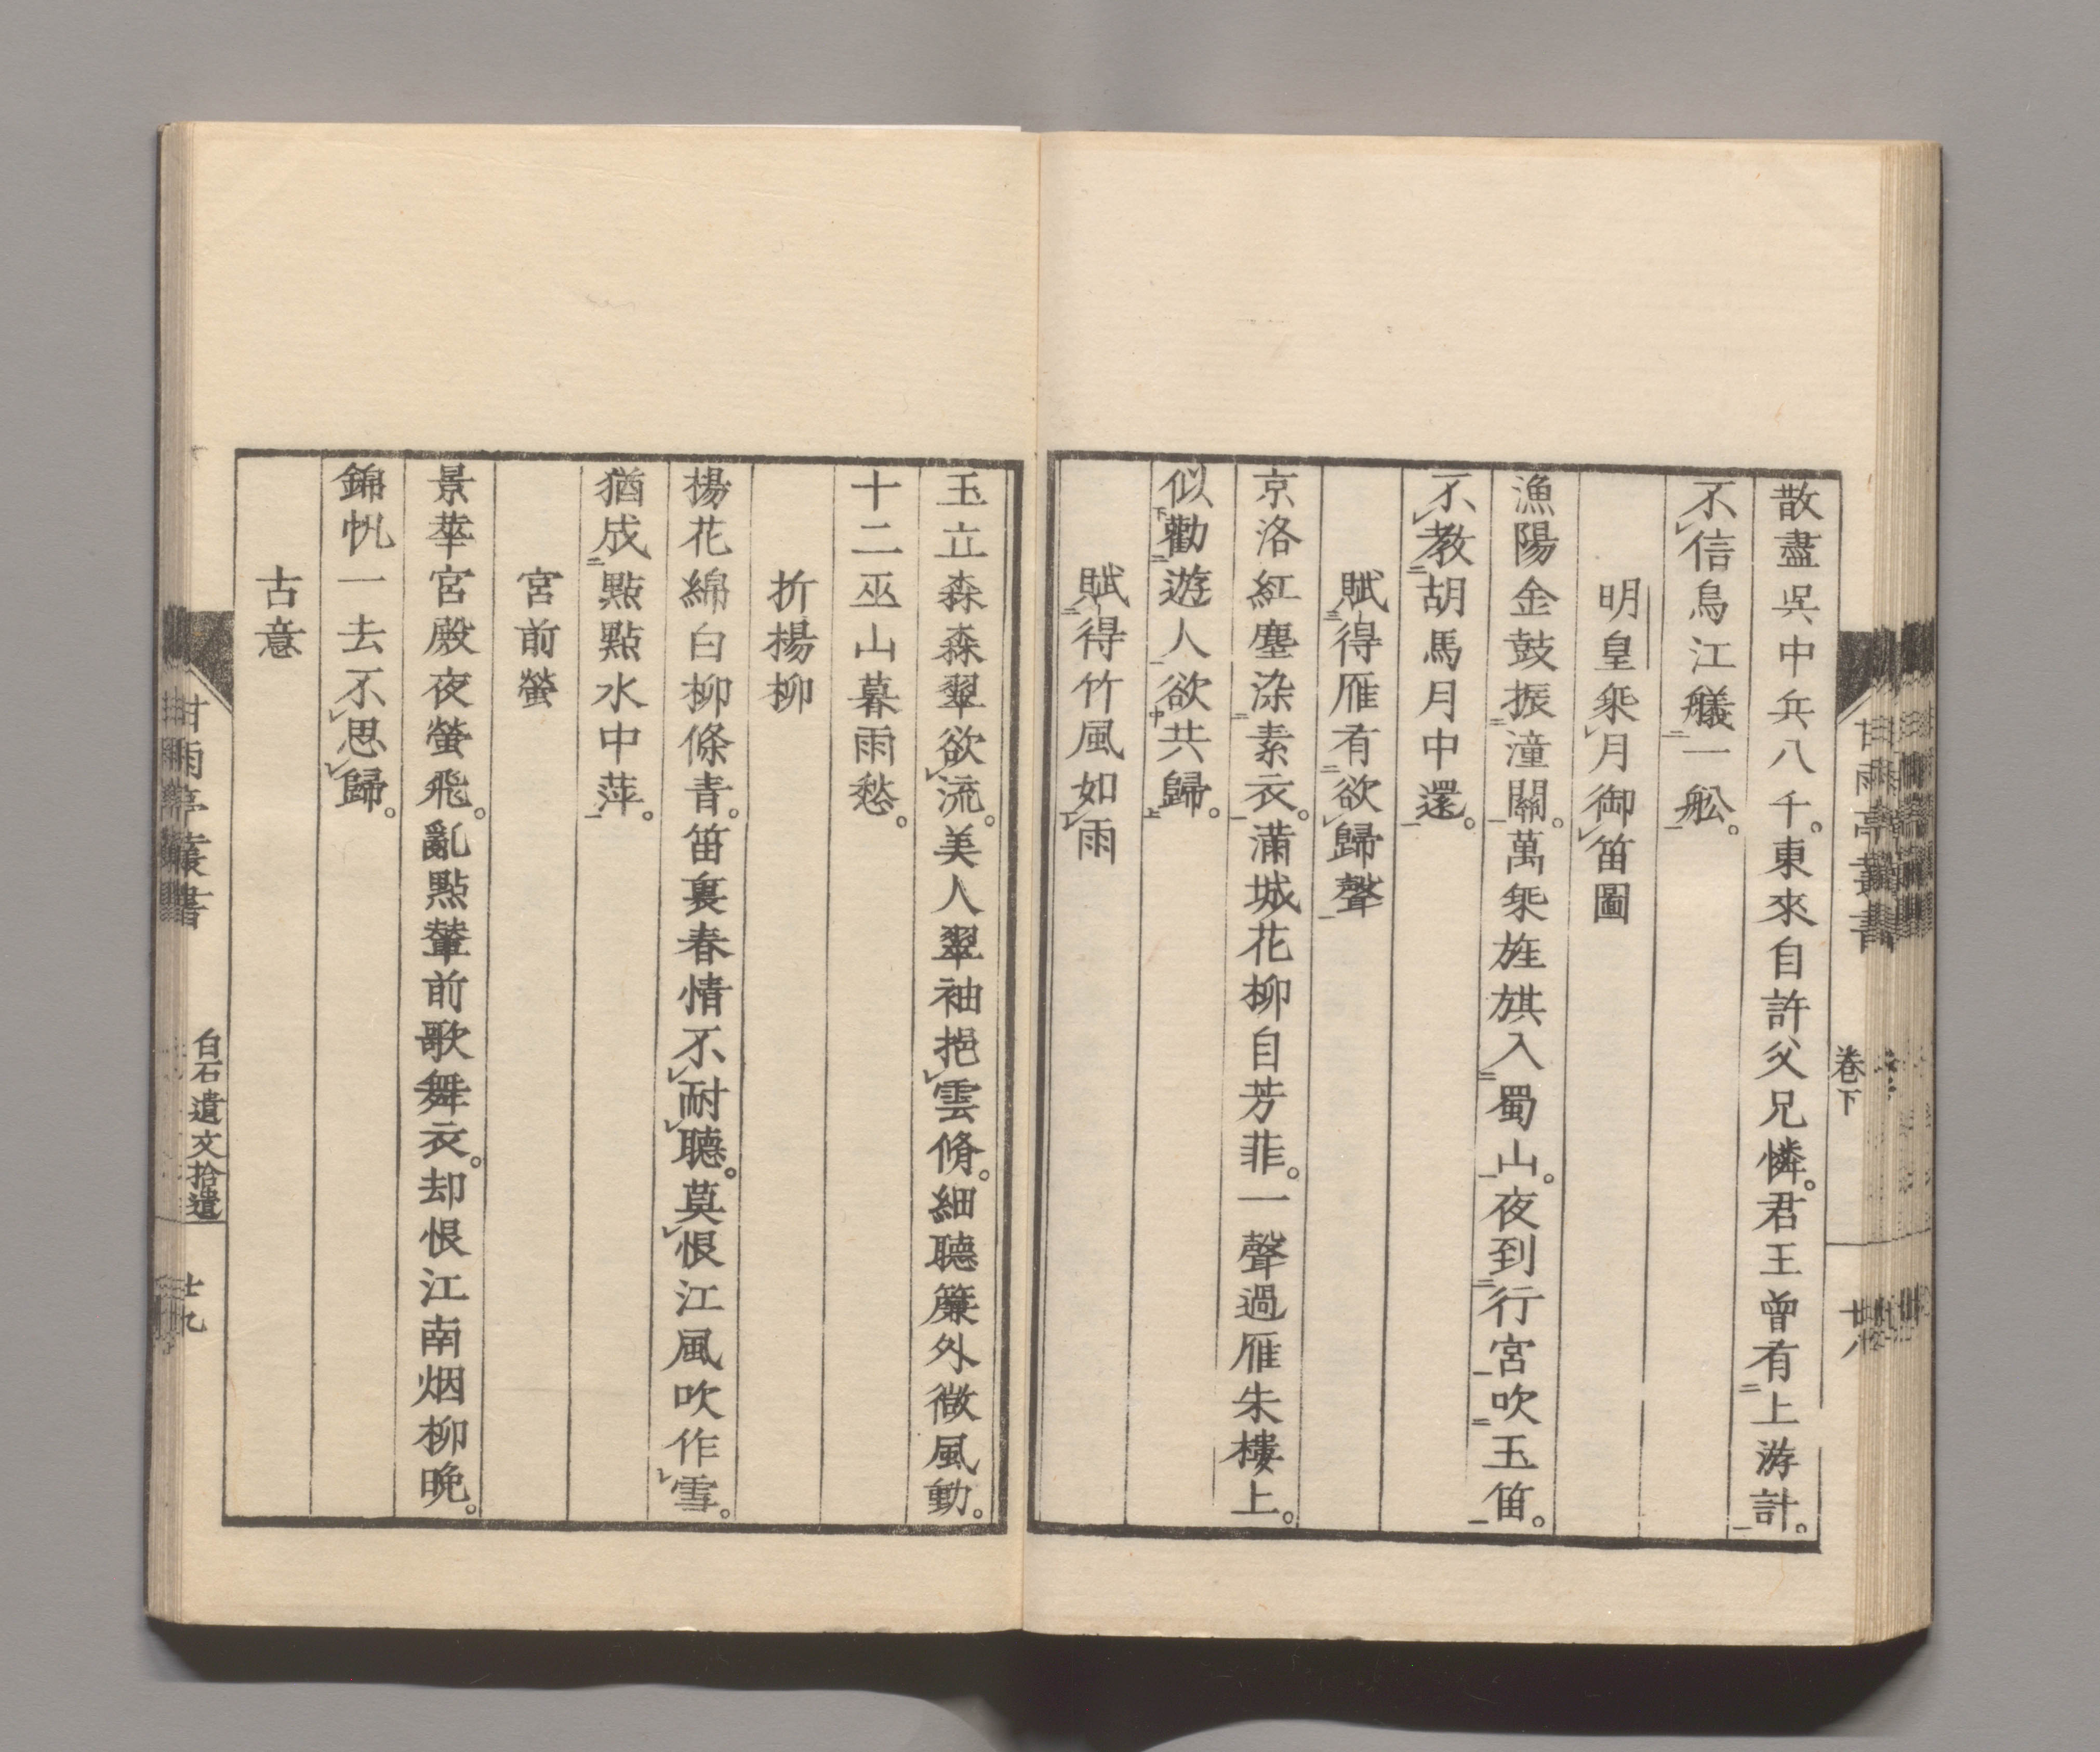 散盡吳中兵八千。東來自許父兄憐。君王曾有上游計。
不信烏江艤一舩。
明皇乗月御笛圖
漁陽金鼓振潼關。萬乗旌旗入蜀山。夜到行宮吹玉笛。
不教胡馬月中還。
賦得雁有欲歸聲
京洛紅塵染素衣。滿城花柳自芳菲。一聲過雁朱樓上。
似勸遊人欲共歸。
賦得竹風如雨
玉立森森翠欲流。美人翠袖挹雲脩。細聽簾外微風動。
十二巫山暮雨愁。
折楊柳
楊花綿白柳條青。笛裏春情不耐聽。莫恨江風吹作雪。
猶成點點水中萍。
宮前螢
景華宮殿夜螢飛。亂點輦前歌舞衣。却恨江南烟柳晚。
錦帆一去不思歸。
古意
甘雨亭叢書
卷下
甘雨亭叢書
白石遺文拾遺